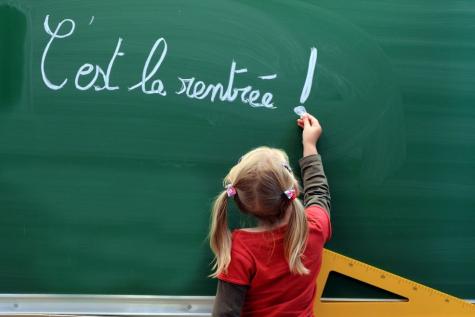 C'est la rentrée !